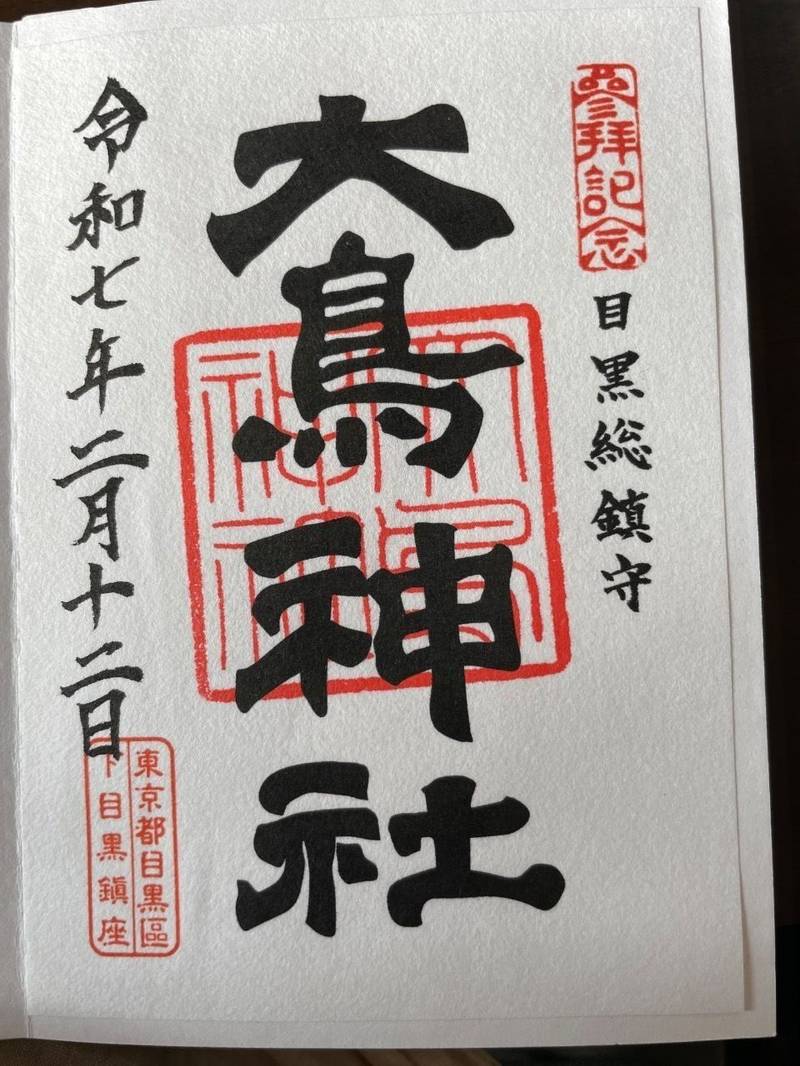 參拜記念
目黒総鎮守
大鳥神社
令和七年二月十二日
東京都目黒區
下目黒鎮座